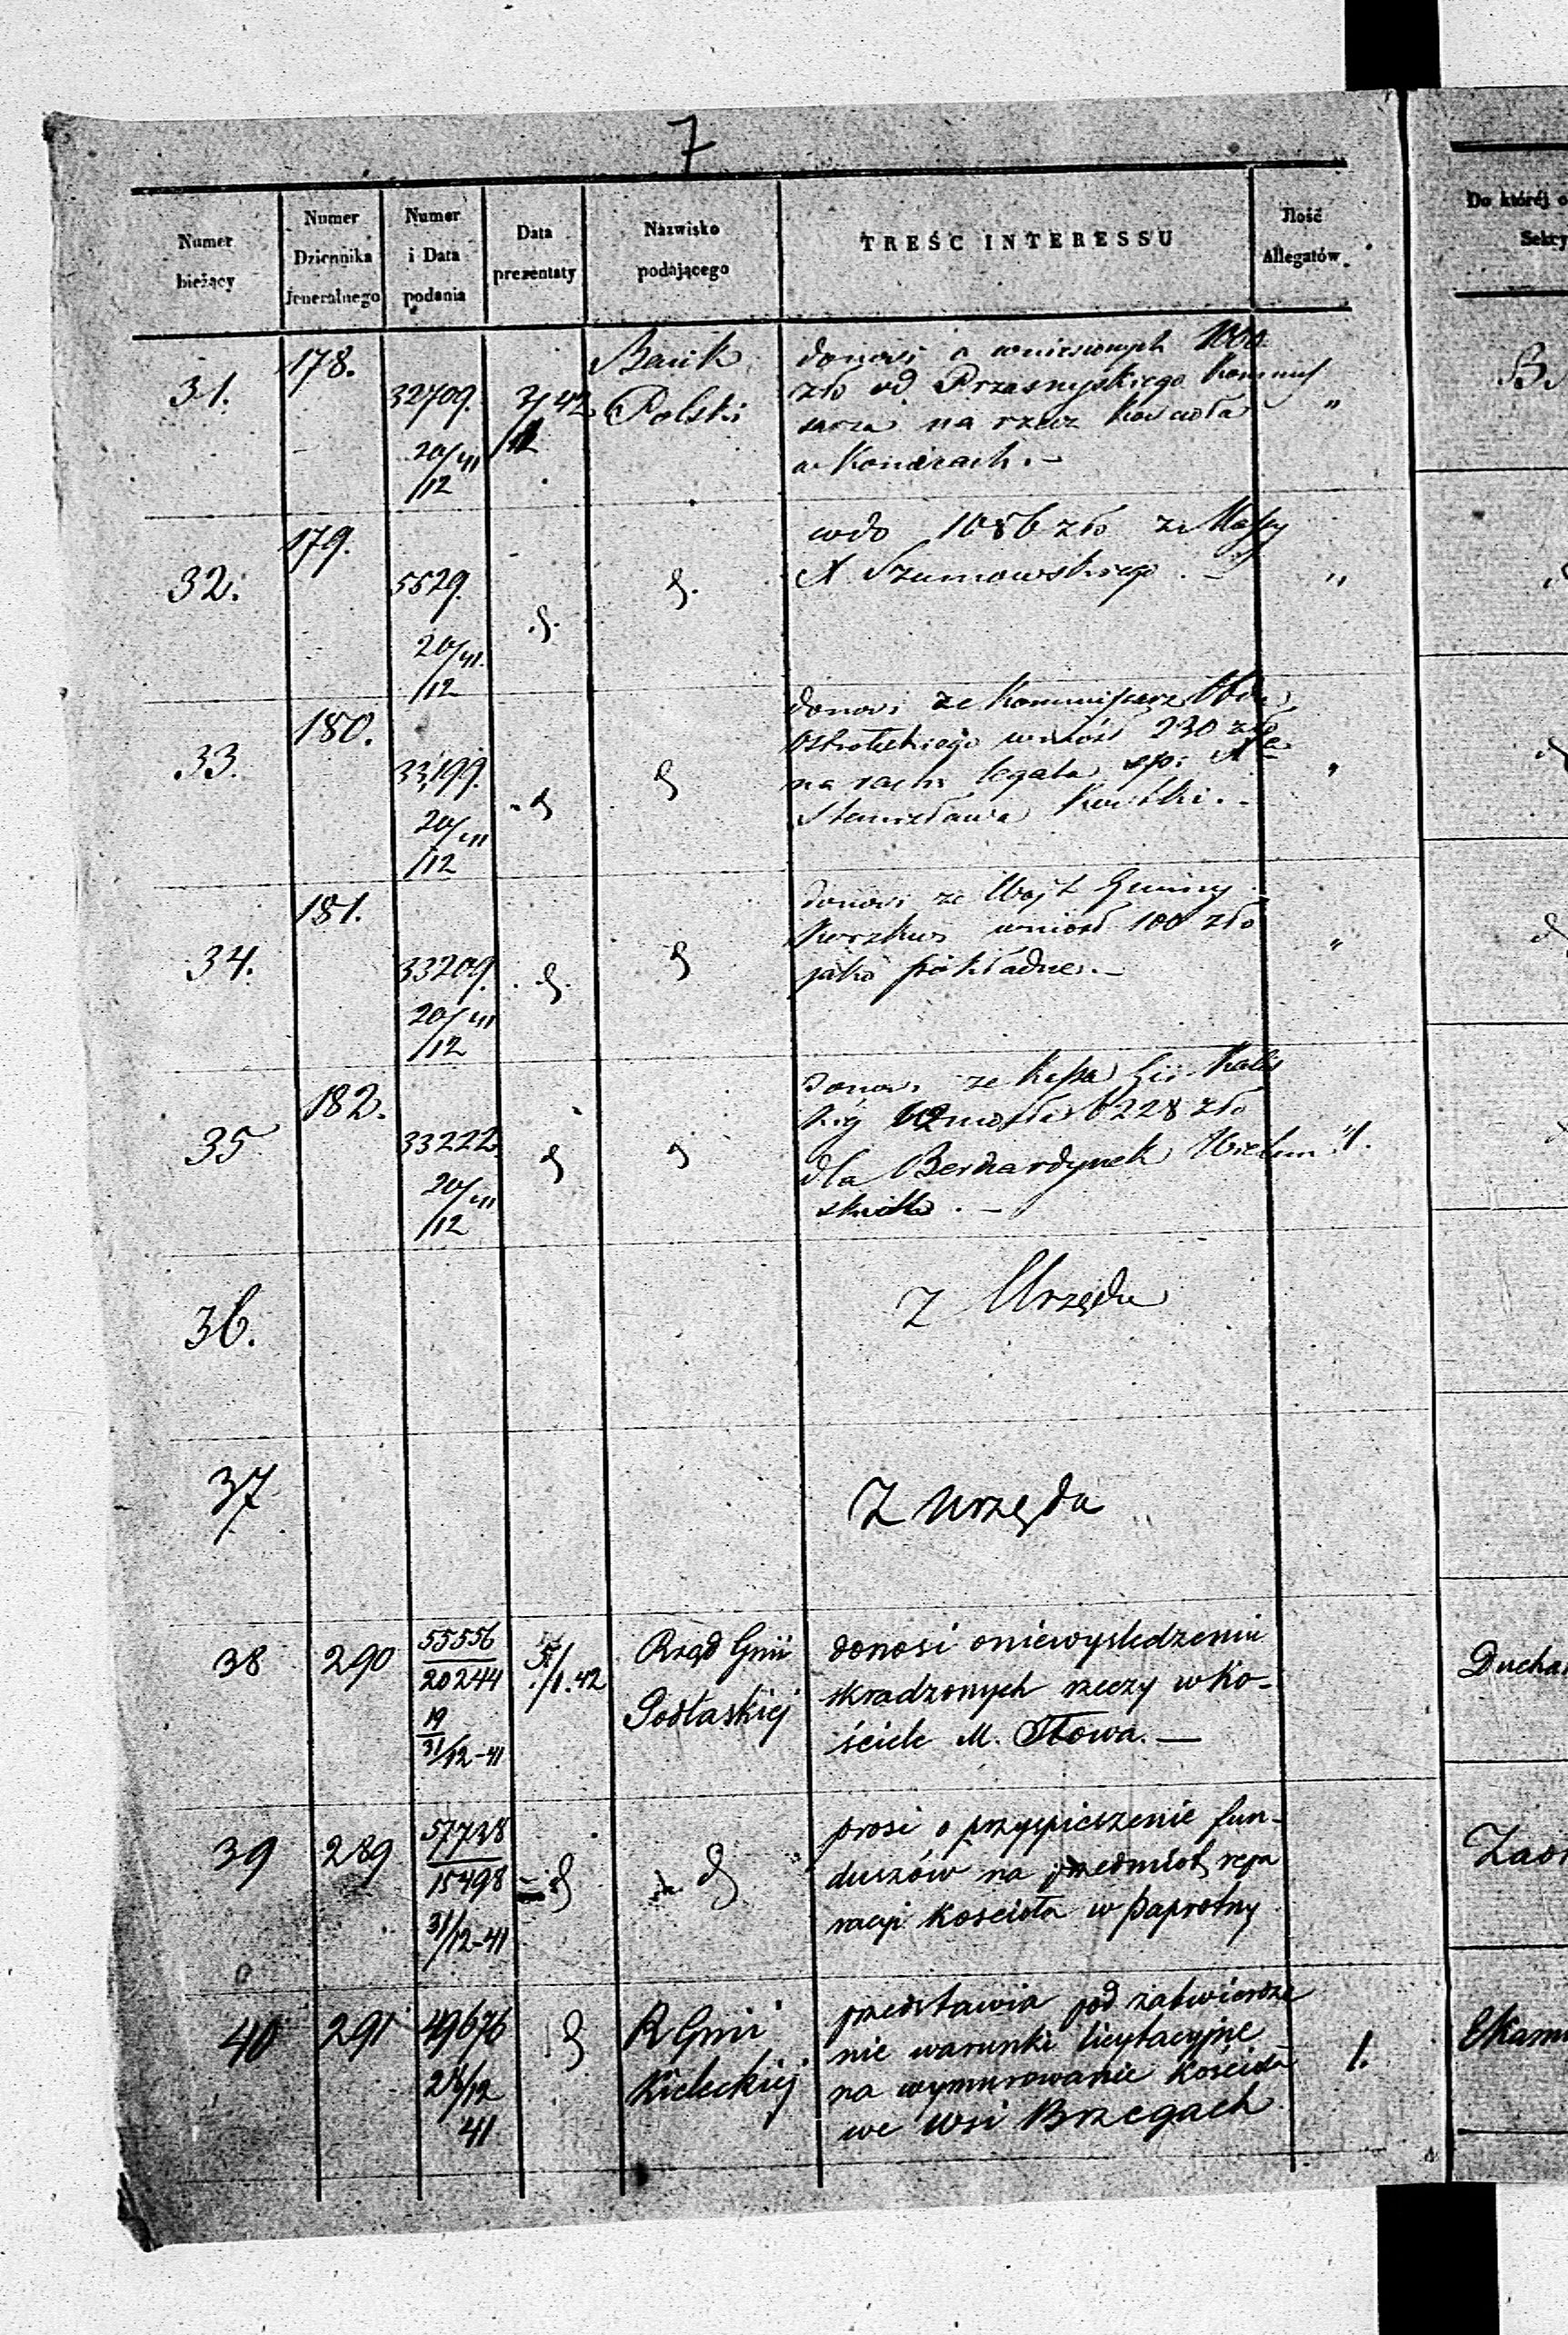 7
Numer bieżący
Numer Dziennika Jeneralnego
Numer i Data podania
Data prezentaty
Nazwisko podającego
TREŚĆ INTERESSU
Ilość Allegatów
Do któréj o
Sekry
31. 178. 32709. 20/12 41 3/1 42 Bank Polski
donosi o wniesionych
złp od Przasnyskiego Kommis
sarza na rzecz Kościoła
w
"
32. 179. 5529. 20/12 41. d. d.
wdo 1086 złp ze Massy
X Szumowskiego. –
"
33. 180. 33,199. 20/12 41 d d
donosi że Kommissarz Obdu
Ostrołęckiego wniósł 230 złp
na rachs legata op: Xa
Stanisława Kostki. –
"
34. 181. 33209. 20/12 41 d. d
donosi że Wójt Gminy
wniósł 100 złp
jako pokładne. –
"
35 182. 33222. 20/12 41 d d
donosi że Kassa Gii Kalis
kiéj wniosła 6228 złp
dla Bernardynek Wieluń
skich. –
"1.
36. Z Urzędu
37 Z Urzędu
38 290 55556 / 20244 19/31/12-41 5/1.42 Rząd Gnii Podlaskiej
donosi o niewyśledzeniu
skradzonych rzeczy w Ko-
ściele M. Stowa. —
Ducha
39 289 57738 / 15498 31/12-41 d d
prosi o przyspieszenie fun-
duszów na przedmiot repa
racyi Kościoła w Paprotny
40 291 49676 28/12 41 d R Gnii Kieleckiej
przedstawia pod zatwierdze
nie warunki licytacyjne
na wymurowanie Kościoła
we wsi Brzegach
1.